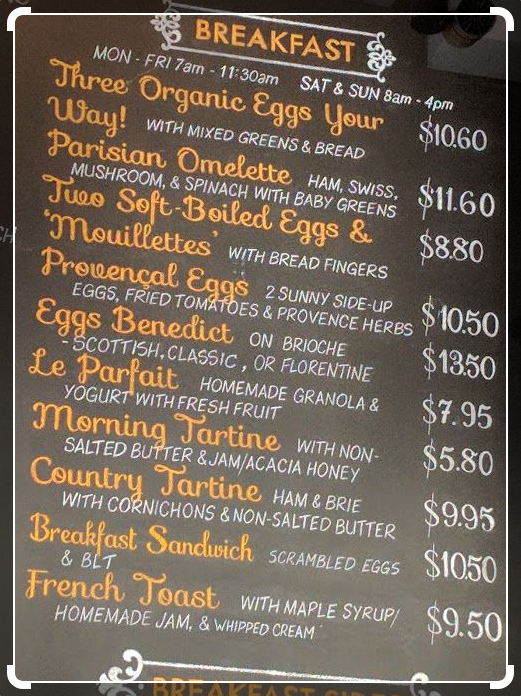 BREAKFAST
MON - FRI 7am - 11:30am SAT & SUN 8am - 4pm
Three Organic Eggs Your
Way! WITH MIXED GREENS & BREAD $10.60
Parisian Omelette HAM, SWISS,
MUSHROOM, & SPINACH WITH BABY GREENS $11.60
Two Soft-Boiled Eggs &
'Mouillettes' WITH BREAD FINGERS $8.80
Provençal Eggs 2 SUNNY SIDE-UP
EGGS, FRIED TOMATOES & PROVENCE HERBS $10.50
Eggs Benedict ON BRIOCHE
- SCOTTISH, CLASSIC, OR FLORENTINE $13.50
Le Parfait HOMEMADE GRANOLA &
YOGURT WITH FRESH FRUIT $7.95
Morning Tartine WITH NON-
SALTED BUTTER & JAM/ACACIA HONEY $5.80
Country Tartine HAM & BRIE
WITH CORNICHONS & NON-SALTED BUTTER $9.95
Breakfast Sandwich SCRAMBLED EGGS
& BLT $10.50
French Toast WITH MAPLE SYRUP/
HOMEMADE JAM, & WHIPPED CREAM $9.50
BREAKFAST